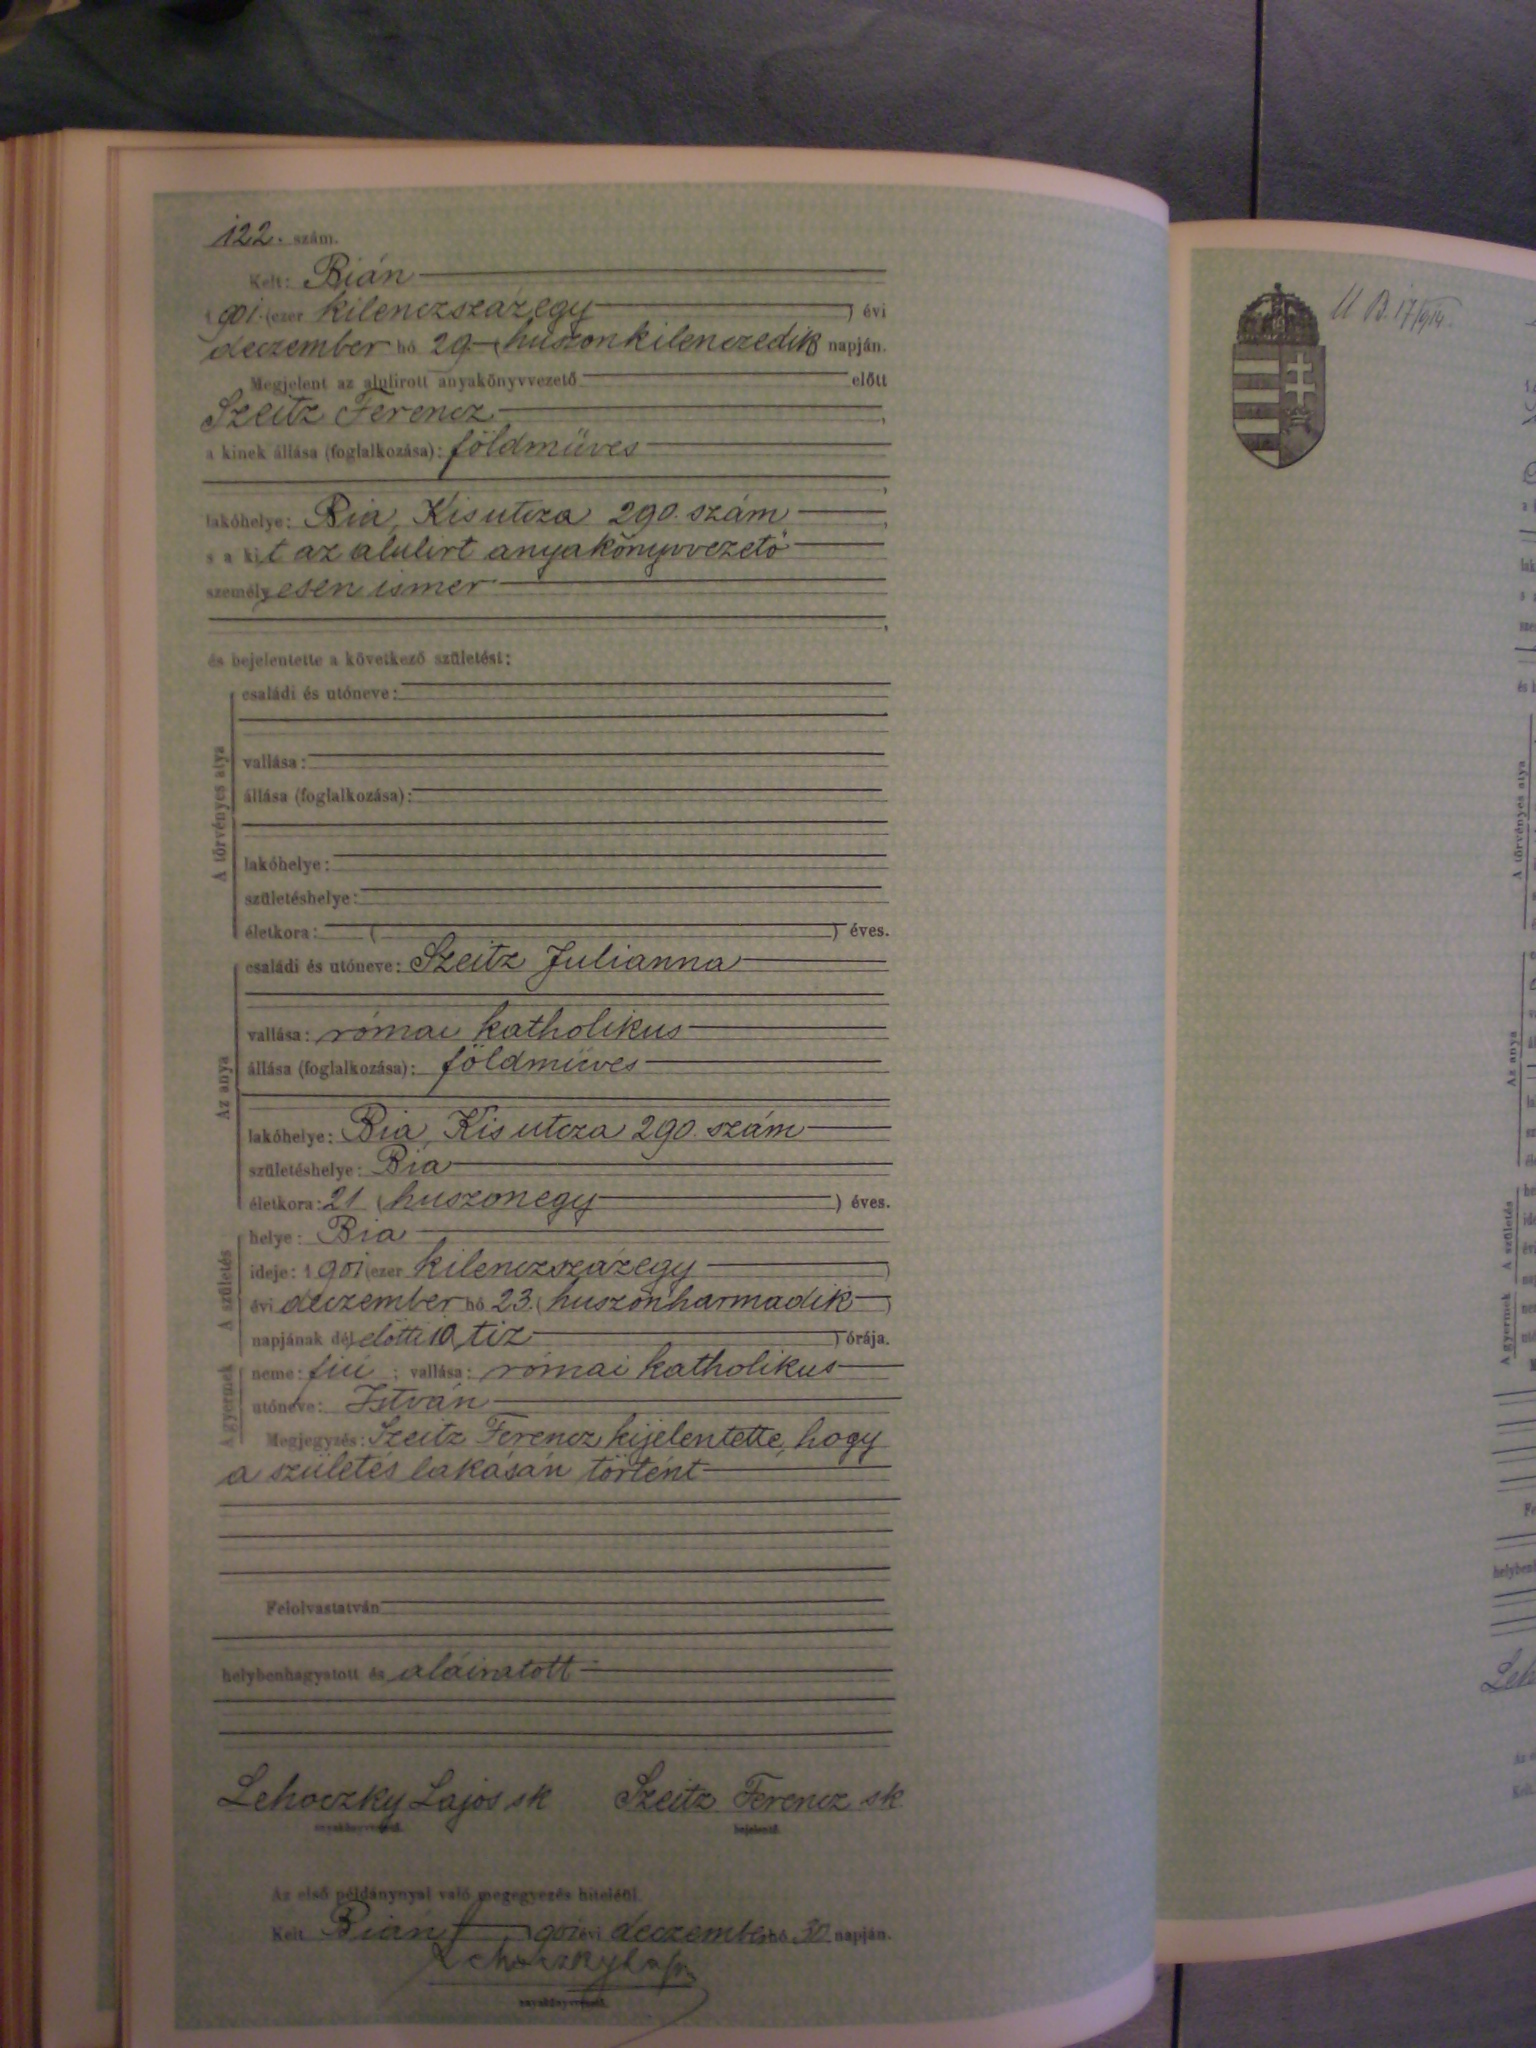 122. szám.
Kelt: Bián
1901. (ezer kilenczszázegy) évi
deczember hó 29 (huszonkilenczedik) napján.
Megjelent az alulirott anyakönyvvezető előtt
Szeitz Ferencz,
a kinek állása (foglalkozása): földmüves,
lakóhelye: Bia, Kis utcza 290. szám,
s a kit az alulirt anyakönyvvezető
személyesen ismer,
és bejelentette a következő születést:
A törvényes atya
családi és utóneve:
vallása:
állása (foglalkozása):
lakóhelye:
születéshelye:
életkora: ( ) éves.
Az anya
családi és utóneve: Szeitz Julianna
vallása: római katholikus
állása (foglalkozása): földmüves
lakóhelye: Bia, Kis utcza 290. szám
születéshelye: Bia
életkora: 21 (huszonegy) éves.
A születés
helye: Bia
ideje: 1901 (ezer kilenczszázegy)
évi deczember hó 23. (huszonharmadik)
napjának délelőtti 10 tiz) órája.
A gyermek
neme: fiú; vallása: római katholikus
utóneve: István
Megjegyzés: Szeitz Ferencz kijelentette, hogy
a születés lakásán történt
Felolvastatván
helybenhagyatott és aláiratott
Lehoczky Lajos sk Szeitz Ferencz sk
anyakönyvvezető. bejelentő.
Az első példánynyal való megegyezés hiteléül.
Kelt Bián 901 évi deczember hó 30. napján.
Lehoczky Lajos
anyakönyvvezető.